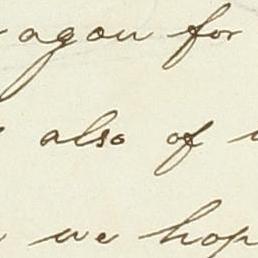 agan for
also of
we hop